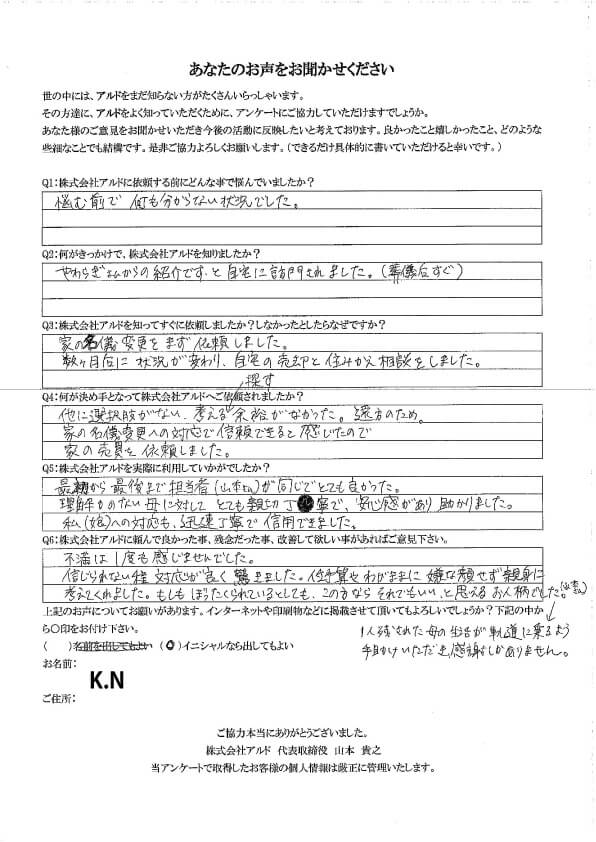 あなたのお声をお聞かせください
世の中には、アルドをまだ知らない方がたくさんいらっしゃいます。
その方達に、アルドをよく知っていただくために、アンケートにご協力していただけますでしょうか。
あなた様のご意見をお聞かせいただき今後の活動に反映したいと考えております。良かったこと嬉しかったこと、どのような
些細なことでも結構です。是非ご協力よろしくお願いします。(できるだけ具体的に書いていただけると幸いです。)
Q1:株式会社アルドに依頼する前にどんな事で悩んでいましたか?
悩む前で 何も分からない状況でした。
Q2:何がきっかけで、株式会社アルドを知りましたか?
やわらぎさんからの紹介です と自宅に訪門されました。(葬儀后すぐ)
Q3:株式会社アルドを知ってすぐに依頼しましたか?しなかったとしたらなぜですか?
家の名儀変更をまず依頼しました。
数ヶ月后に状況が変わり、自宅の売却と住みかえ相談をしました。
Q4:何が決め手となって株式会社アルドへご依頼されましたか?
探す
他に選択肢がない、考える余裕がなかった。遠方のため。
家の名儀変更への対応で信頼できると感じたので
家の売買を依頼しました。
Q5:株式会社アルドを実際に利用していかがでしたか?
最初から最後まで担当者(山本さん)が同じでとても良かった。
理解力のない母に対して とても親切丁寧で、安心感があり助かりました。
私(娘)への対応も、迅速丁寧で信用できました。
Q6:株式会社アルドに頼んで良かった事、残念だった事、改善して欲しい事があればご意見下さい。
不満は1度も感じませんでした。
信じられない程 対応が良く 驚きました。低予算やわがままに嫌な顔せず親身に
考えてくれました。もしもぼったくられているとしても、この方なら それでもいい、と思えるお人柄でした。(山本さん)
上記のお声についてお願いがあります。インターネットや印刷物などに掲載させて頂いてもよろしいでしょうか?下記の中か
ら〇印をお付け下さい。
1人残された母の生活が軌道に乗るよう
手助けいただき、感謝しかありません。
( )名前を出してもよい (〇)イニシャルなら出してもよい
お名前:
K.N
ご住所:
ご協力本当にありがとうございました。
株式会社アルド 代表取締役 山本 貴之
当アンケートで取得したお客様の個人情報は厳正に管理いたします。